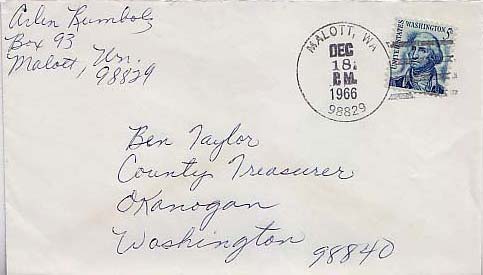 Arlen Rumbolz
Box 93
Malott, Wn.
98829
MALOTT, WA
DEC
18.
P.M.
1966
98829
UNITED STATES
WASHINGTON 5c
Ben Taylor
County Treasurer
Okanogan
Washington
98840